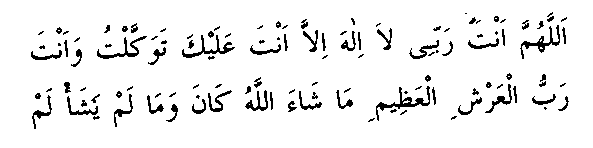 اَللَّهُمَّ اَنْتَ رَبِّى لاَ اِلٰهَ اِلاَّ اَنْتَ عَلَيْكَ تَوَكَّلْتُ وَاَنْتَ
رَبُّ الْعَرْشِ الْعَظِيمِ مَا شَاءَ اللَّهُ كَانَ وَمَا لَمْ يَشَأْ لَمْ